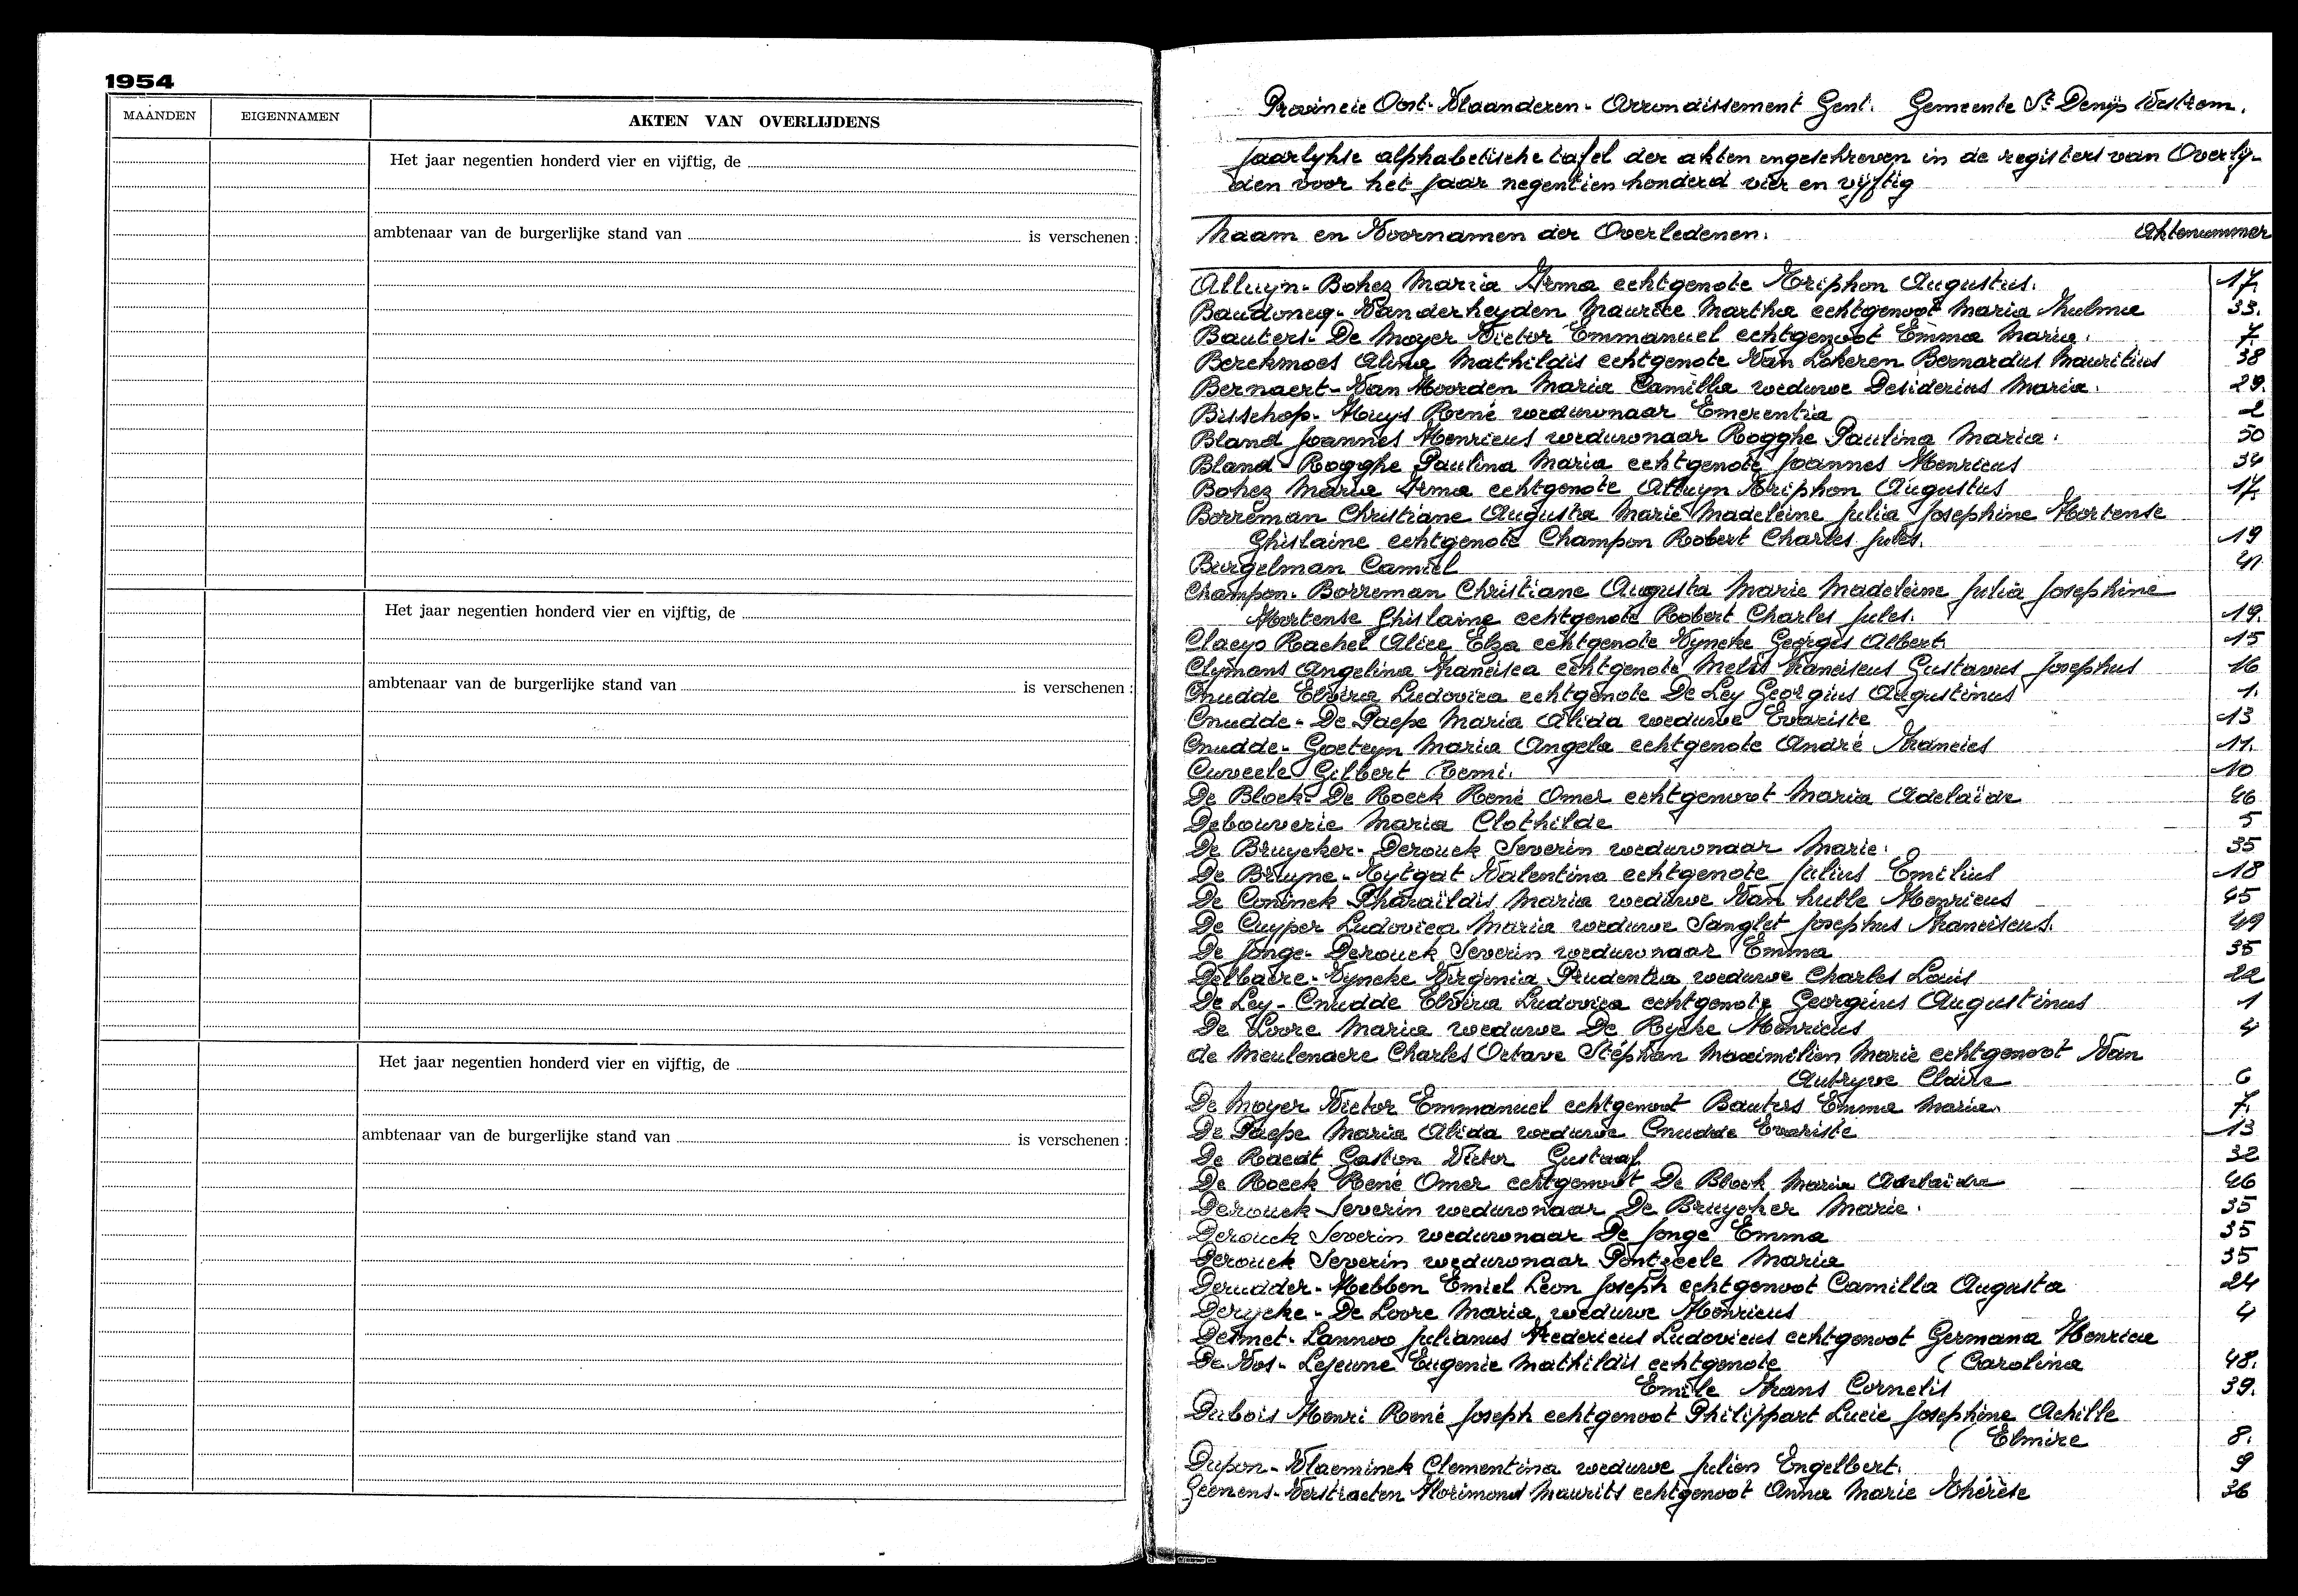 1954
MAANDEN EIGENNAMEN AKTEN VAN OVERLIJDENS
Het jaar negentien honderd vier en vijftig, de
ambtenaar van de burgerlijke stand van is verschenen :
Het jaar negentien honderd vier en vijftig, de
ambtenaar van de burgerlijke stand van is verschenen :
Het jaar negentien honderd vier en vijftig, de
ambtenaar van de burgerlijke stand van is verschenen :
Provincie Oost-Vlaanderen - Arrondissement Gent. Gemeente St Denijs Westrem.
Jaarlykse alphabetische tafel der akten ingeschreven in de registers van Overly-
den voor het jaar negentien honderd vier en vijftig
Naam en Voornamen der Overledenen. Aktenummer
Alluyn-Bohez Maria Irma echtgenote Triphon Augustus. 17.
Baudoncq-Vanderheyden Maurice Martha echtgenoot Maria Hulma 33.
Bauters-De Moyer Victor Emmanuel echtgenoot Emma Maria. 7.
Berckmoes Alina Mathildis echtgenote Van Lokeren Bernardus Mauritius 38
Bernaert-Van Hoorden Maria Camilla weduwe Desiderius Maria. 29.
Bisschop-Huys René weduwnaar Emerentia 2
Bland Joannes Henricus weduwnaar Rogghe Paulina Maria. 50
Bland-Rogghe Paulina Maria echtgenote Joannes Henricus 34
Bohez Maria Irma echtgenote Alluyn Triphon Augustus 17.
Borreman Christiane Augusta Marie Madeleine Julia Josephine Hortense
Ghislaine echtgenote Champon Robert Charles Jules. 19
Burgelman Camiel 41
Champon-Borreman Christiane Augusta Marie Madeleine Julia Josephine
Hortense Ghislaine echtgenote Robert Charles Jules. 19.
Claeys Rachel Alice Elza echtgenote Vyncke Georges Albert 15
Clymans Angelina Francisca echtgenote Melis Franciscus Gustavus Josephus 16
Cnudde Elvira Ludovica echtgenote De Ley Georgius Augustinus 1.
Cnudde-De Paepe Maria Alida weduwe Evariste 13
Cnudde-Goeteyn Maria Angela echtgenote André Francies 11.
Cuveele Gilbert Remi. 10
De Block-De Roeck René Omer echtgenoot Maria Adelaïde 46
Debouverie Maria Clothilde 5
De Bruycker-Derouck Severin weduwnaar Marie. 35
De Bruyne-Eytgat Valentina echtgenote Julius Emilius 18
De Coninck Pharaïldis Maria weduwe Van hulle Henricus 45
De Cuyper Ludovica Maria weduwe Sanglet Josephus Franciscus. 49
De Jonge-Derouck Severin weduwnaar Emma 35
Delbaere-Vyncke Virginia Prudentia weduwe Charles Louis 22
De Ley-Cnudde Elvira Ludovica echtgenote Georgius Augustinus 1
De Loore Maria weduwe De Rycke Henricus 4
de Meulenaere Charles Octave Stéphan Maximilien Marie echtgenoot Van
Outryve Claire 6
De Moyer Victor Emmanuel echtgenoot Bauters Emma Maria. 7.
De Paepe Maria Alida weduwe Cnudde Evariste 13
De Raedt Gaston Victor Gustaaf 32
De Roeck René Omer echtgenoot De Block Maria Adelaïde 46
Derouck Severin weduwnaar De Bruycker Marie. 35
Derouck Severin weduwnaar De Jonge Emma 35
Derouck Severin weduwnaar Pontzeele Maria 35
Derudder-Hebben Emiel Leon Joseph echtgenoot Camilla Augusta 24
Derycke-De Loore Maria weduwe Henricus 4
Desmet-Lannoo Julianus Fredericus Ludovicus echtgenoot Germana Henrica
( Carolina 48.
De Vos-Lejeune Eugenie Mathildis echtgenote
Emile Frans Cornelis 39.
Dubois Henri René Joseph echtgenoot Philippart Lucie Josephine Achille
( Elmire 8.
Dupon-Vlaeminck Clementina weduwe Julien Engelbert. 9
Geenens-Verstraeten Florimond Maurits echtgenoot Anna Marie Thérèse 36